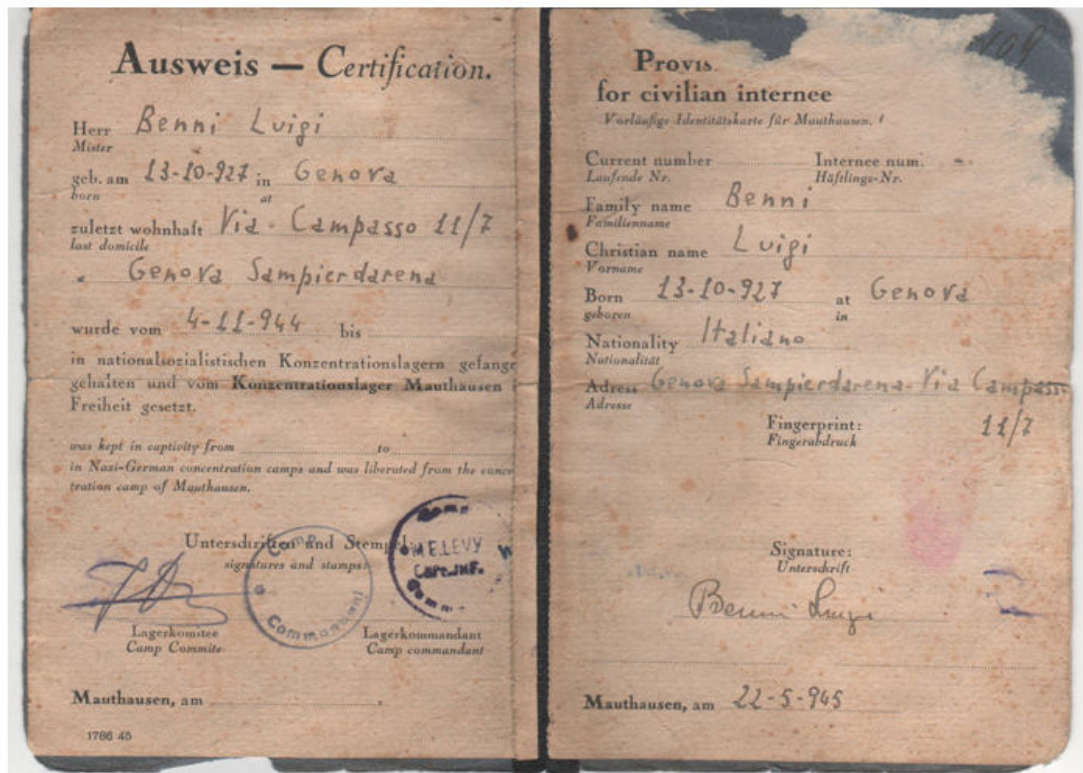 Ausweis — Certification.
Herr Benni Luigi
Mister
geb. am 13-10-927 in Genova
born at
zuletzt wohnhaft Via - Campasso 11/7
last domicile
" Genova Sampierdarena
wurde vom 4-11-944 bis
in nationalsozialistischen Konzentrationslagern gefange
gehalten und vom Konzentrationslager Mauthausen
Freiheit gesetzt.
was kept in captivity from to
in Nazi-German concentration camps and was liberated from the conce
tration camp of Mauthausen.
Unterschriften und Stempel:
signatures and stamps:
Camp
Commandant
Camp
M.E. LEVY
Capt. INF.
Comm
Lagerkomitee
Camp Commite
Lagerkommandant
Camp commandant
Mauthausen, am
1786 45
Provis
for civilian internee
Vorläufige Identitätskarte für Mauthausen.
Current number Internee num.
Laufende Nr. Häftlings-Nr.
Family name Benni
Familienname
Christian name Luigi
Vorname
Born 13-10-927 at Genova
geboren in
Nationality Italiano
Nationalität
Adress Genova Sampierdarena-Via Campass
Adresse
Fingerprint: 11/7
Fingerabdruck
Signature:
Unterschrift
Benni Luigi
Mauthausen, am 22-5-945